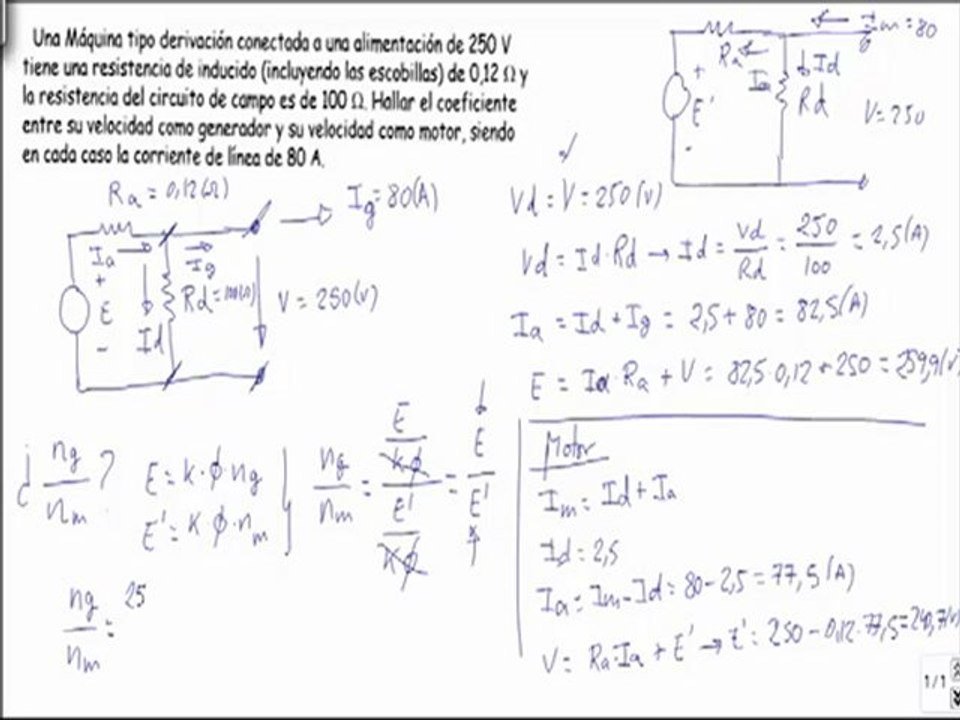 Una Máquina tipo derivación conectada a una alimentación de 250 V
tiene una resistencia de inducido (incluyendo las escobillas) de 0,12 Ω y
la resistencia del circuito de campo es de 100 Ω. Hallar el coeficiente
entre su velocidad como generador y su velocidad como motor, siendo
en cada caso la corriente de línea de 80 A.
Im = 80
Ra
Ia
Id
Rd
+
E'
-
V = 250
Ra = 0,12(Ω)
Ig = 80(A)
Ia
Ig
+
E
-
Id
Rd = 100(Ω)
V = 250(V)
Vd = V = 250(V)
Vd = Id·Rd → Id = Vd/Rd = 250/100 = 2,5(A)
Ia = Id + Ig = 2,5 + 80 = 82,5(A)
E = Ia·Ra + V = 82,5·0,12 + 250 = 259,9(V)
¿ ng/nm ?
E = K·ϕ·ng
E' = K·ϕ·nm
ng/nm = (E/Kϕ)/(E'/Kϕ) = E/E'
ng/nm = 25
Motor
Im = Id + Ia
Id = 2,5
Ia = Im - Id = 80 - 2,5 = 77,5(A)
V = Ra·Ia + E' → E' = 250 - 0,12·77,5 = 240,7(V)
1/1